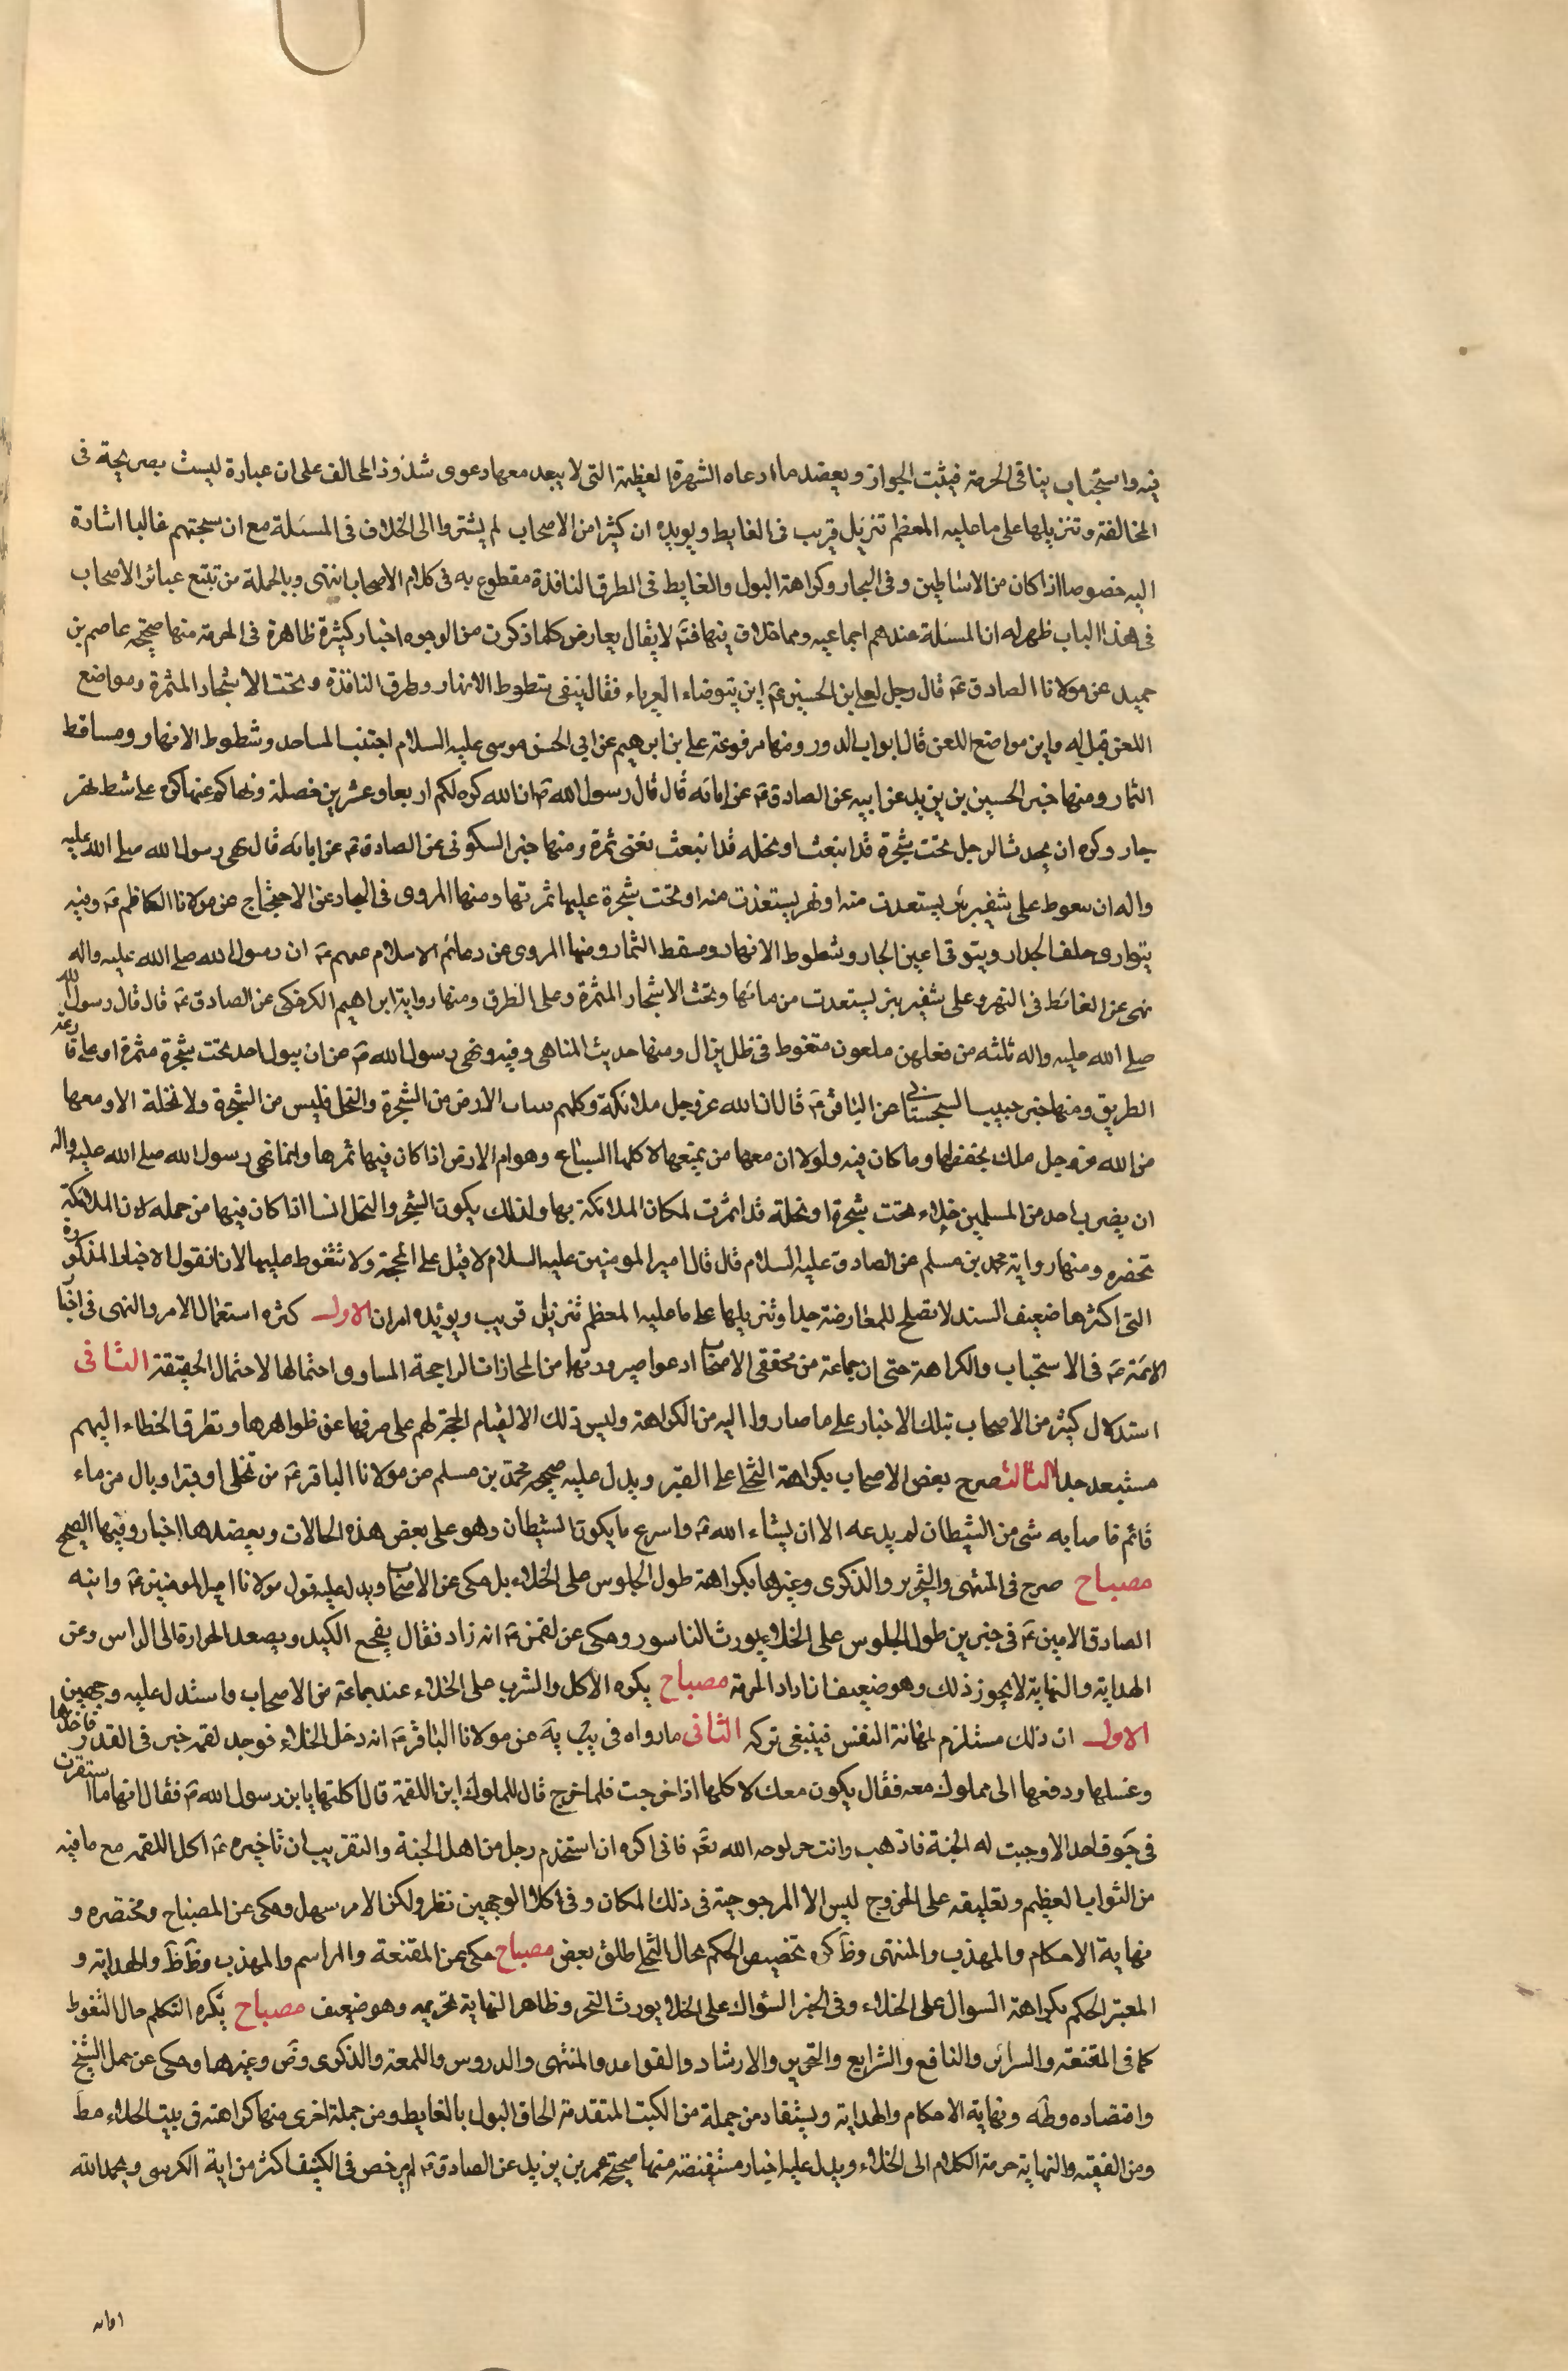 فيه واستحباب ينافى الحرمة فيثبت الجواز ويعضد ما ادعاه الشهرة العظيمة التى لا يبعد معها دعوى شذوذ المخالف على ان عبارة ليست بصريحة فى
المخالفة وتنزيلها على ما عليه المعظم تنزيل قريب فى الغايط ويويده ان كثيرا من الاصحاب لم يشيروا الى الخلاف فى المسئلة مع ان سجيتهم غالبا اشارة
اليه خصوصا اذا كان من الاساطين وفى البحار وكراهة البول والغايط فى الطرق النافذة مقطوع به فى كلام الاصحاب انتهى وبالجملة من تتبع عبائر الاصحاب
فى هذا الباب ظهر له ان المسئلة عندهم اجماعيه ومما خلاف فيها فتم لا يقال يعارض كلما ذكرت من الوجوه اخبار كثيرة ظاهرة فى الحرمة منها صحيحة عاصم بن
حميد عن مولانا الصادق ع قال رجل لعلى بن الحسين ع اين يتوضاء الغرباء فقال يتقى شطوط الانهار وطرق النافذة وتحت الاشجار المثمرة ومواضع
اللعن قيل له واين مواضع اللعن قال ابواب الدور ومنها مرفوعة على بن ابرهيم عن ابى الحسن موسى عليه السلام اجتنب المساجد وشطوط الانهار ومساقط
الثمار ومنها خبر الحسين بن يزيد عن ابيه عن الصادق ع عن ابائه قال قال رسول الله ص ان الله كره لكم اربعا وعشرين خصلة ونهاكم عنها كره على شط نهر
جار وكره ان يحدث الرجل تحت شجرة قد اينعت او نخله قد اينعت يعنى ثمرة ومنها خبر السكونى عن الصادق ع عن ابائه قال نهى رسول الله صلى الله عليه
واله ان يتغوط على شفير بئر يستعذب منه او نهر يستعذب منه او تحت شجرة عليها ثمرتها ومنها المروى فى البحار عن الاحتجاج عن مولانا الكاظم ع وفيه
يتوارى خلف الجدار ويتوقى اعين الجار وشطوط الانهار ومسقط الثمار ومنها المروى عن دعائم الاسلام عنهم ع ان رسول الله صلى الله عليه واله
نهى عن الغائط فى النهر وعلى شفير بئر يستعذب من مائها وتحت الاشجار المثمرة وعلى الطرق ومنها رواية ابراهيم الكرخى عن الصادق ع قال قال رسول الله
صلى الله عليه واله ثلثه من فعلهن ملعون متغوط فى ظل نزال ومنها حديث المناهى وفيه ونهى رسول الله ص عن ان يبول احد تحت شجرة مثمرة او على قارعة
الطريق ومنها خبر حبيب السجستانى عن الباقر ع قال ان لله عز وجل ملائكة وكلهم بنبات الارض من الشجرة والنخل فليس من الشجرة ولا نخلة الا ومعها
من الله عز وجل ملك يحفظها وما كان فيه ولولا ان معها من يمنعها لاكلها السباع وهوام الارض اذا كان فيها ثمرها وانما نهى رسول الله صلى الله عليه واله
ان يضرب احد من المسلمين خلاء تحت شجرة او نخلة قد اثمرت لمكان الملائكة بها ولذلك يكون الشجر والنخل انسا اذا كان فيها من حمله لان الملائكة
تحضره ومنها رواية محمد بن مسلم عن الصادق عليه السلام قال قال امير المومنين عليه السلام لا تبل على المحجة ولا تتغوط عليها لانا نقول الاخبار المذكورة
التى اكثرها ضعيف السند لا تصلح للمعارضة جدا وتنزيلها على ما عليه المعظم تنزيل قريب ويؤيده امران الاول كثره استعمال الامر والنهى فى اخبار
الائمة ع فى الاستحباب والكراهة حتى ان جماعة من محققى الاصحاب ادعوا صيرورتها من المجازات الراجحة المساوى احتمالها لاحتمال الحقيقة الثانى
استدلال كثير من الاصحاب بتلك الاخبار على ما صاروا اليه من الكراهة وليس ذلك الا لقيام الحجة لهم على صرفها عن ظواهرها وتطرق الخطاء اليهم
مستبعد جدا الثالث صرح بعض الاصحاب بكراهة التخلى على القبر ويدل عليه صحيحه محمد بن مسلم عن مولانا الباقر ع من تخلى او قبر او بال من ماء
قائم فاصابه شى من الشيطان لم يدعه الا ان يشاء الله ع واسرع ما يكون الشيطان وهو على بعض هذه الحالات ويعضدها اخبار وفيها الصحيح
مصباح صرح فى المنتهى والتحرير والذكرى وغيرها بكراهة طول الجلوس على الخلاء بل حكى عن الاصحاب ويدل عليه قول مولانا امير المومنين ع وابنه
الصادق الامين ع فى خبرين طول الجلوس على الخلاء يورث الناسور وحكى عن لقمن ع انه زاد فقال يفجع الكبد ويصعد الحرارة الى الراس وعن
الهداية والنهاية لا يجوز ذلك وهو ضعيف ان ارادا الحرمة مصباح يكره الاكل والشرب على الخلاء عند جماعة من الاصحاب واستدل عليه وجهين
الاول ان ذلك مستلزم لمهانة النفس فينبغى تركه الثانى ما رواه فى يب يه عن مولانا الباقر ع انه دخل الخلاء فوجد لقمه خبز فى القذر فاخذها
وغسلها ودفعها الى مملوك معه فقال يكون معك لاكلها اذا خرجت فلما خرج قال للمملوك اين اللقمة قال اكلتها يا بن رسول الله ص فقال انها ما استقرت
فى جوف احد الا وجبت له الجنة فاذهب وانت حر لوجه الله تع فانى اكره ان استخدم رجل من اهل الجنة والتقريب ان تاخيره ع اكل اللقمه مع ما فيه
من الثواب العظيم وتعليقه على الخروج ليس الا المرجوحية فى ذلك المكان وفى كلا الوجهين نظر ولكن الامر سهل وحكى عن المصباح ومختصره و
نهاية الاحكام والمهذب والمنتهى وظ كره تخصيص الحكم بحال التخلى اطلق بعض مصباح حكى عن المقنعة والمراسم والمهذب والهداية و
المعتبر الحكم بكراهة السواك على الخلاء وفى الخبر السواك على الخلا يورث البخر وظاهر النهاية تحريمه وهو ضعيف مصباح يكره التكلم حال التغوط
كما فى المقنعة والسرائر والنافع والشرايع والتحرير والارشاد والقواعد والمنتهى والدروس واللمعة والذكرى وض وغيرها وحكى عن جمل الشيخ
واقتصاده وط ونهاية الاحكام والهداية ويستفاد من جملة من الكتب المتقدمة الحاق البول بالغايط ومن جملة اخرى منها كراهته فى بيت الخلاء مط
ومن الفقيه والنهاية حرمة الكلام الى الخلاء ويدل عليه اخبار مستفيضة منها صحيحه عمر بن يزيد عن الصادق ع لم يرخص فى الكنيف اكثر من اية الكرسى ويحمد الله